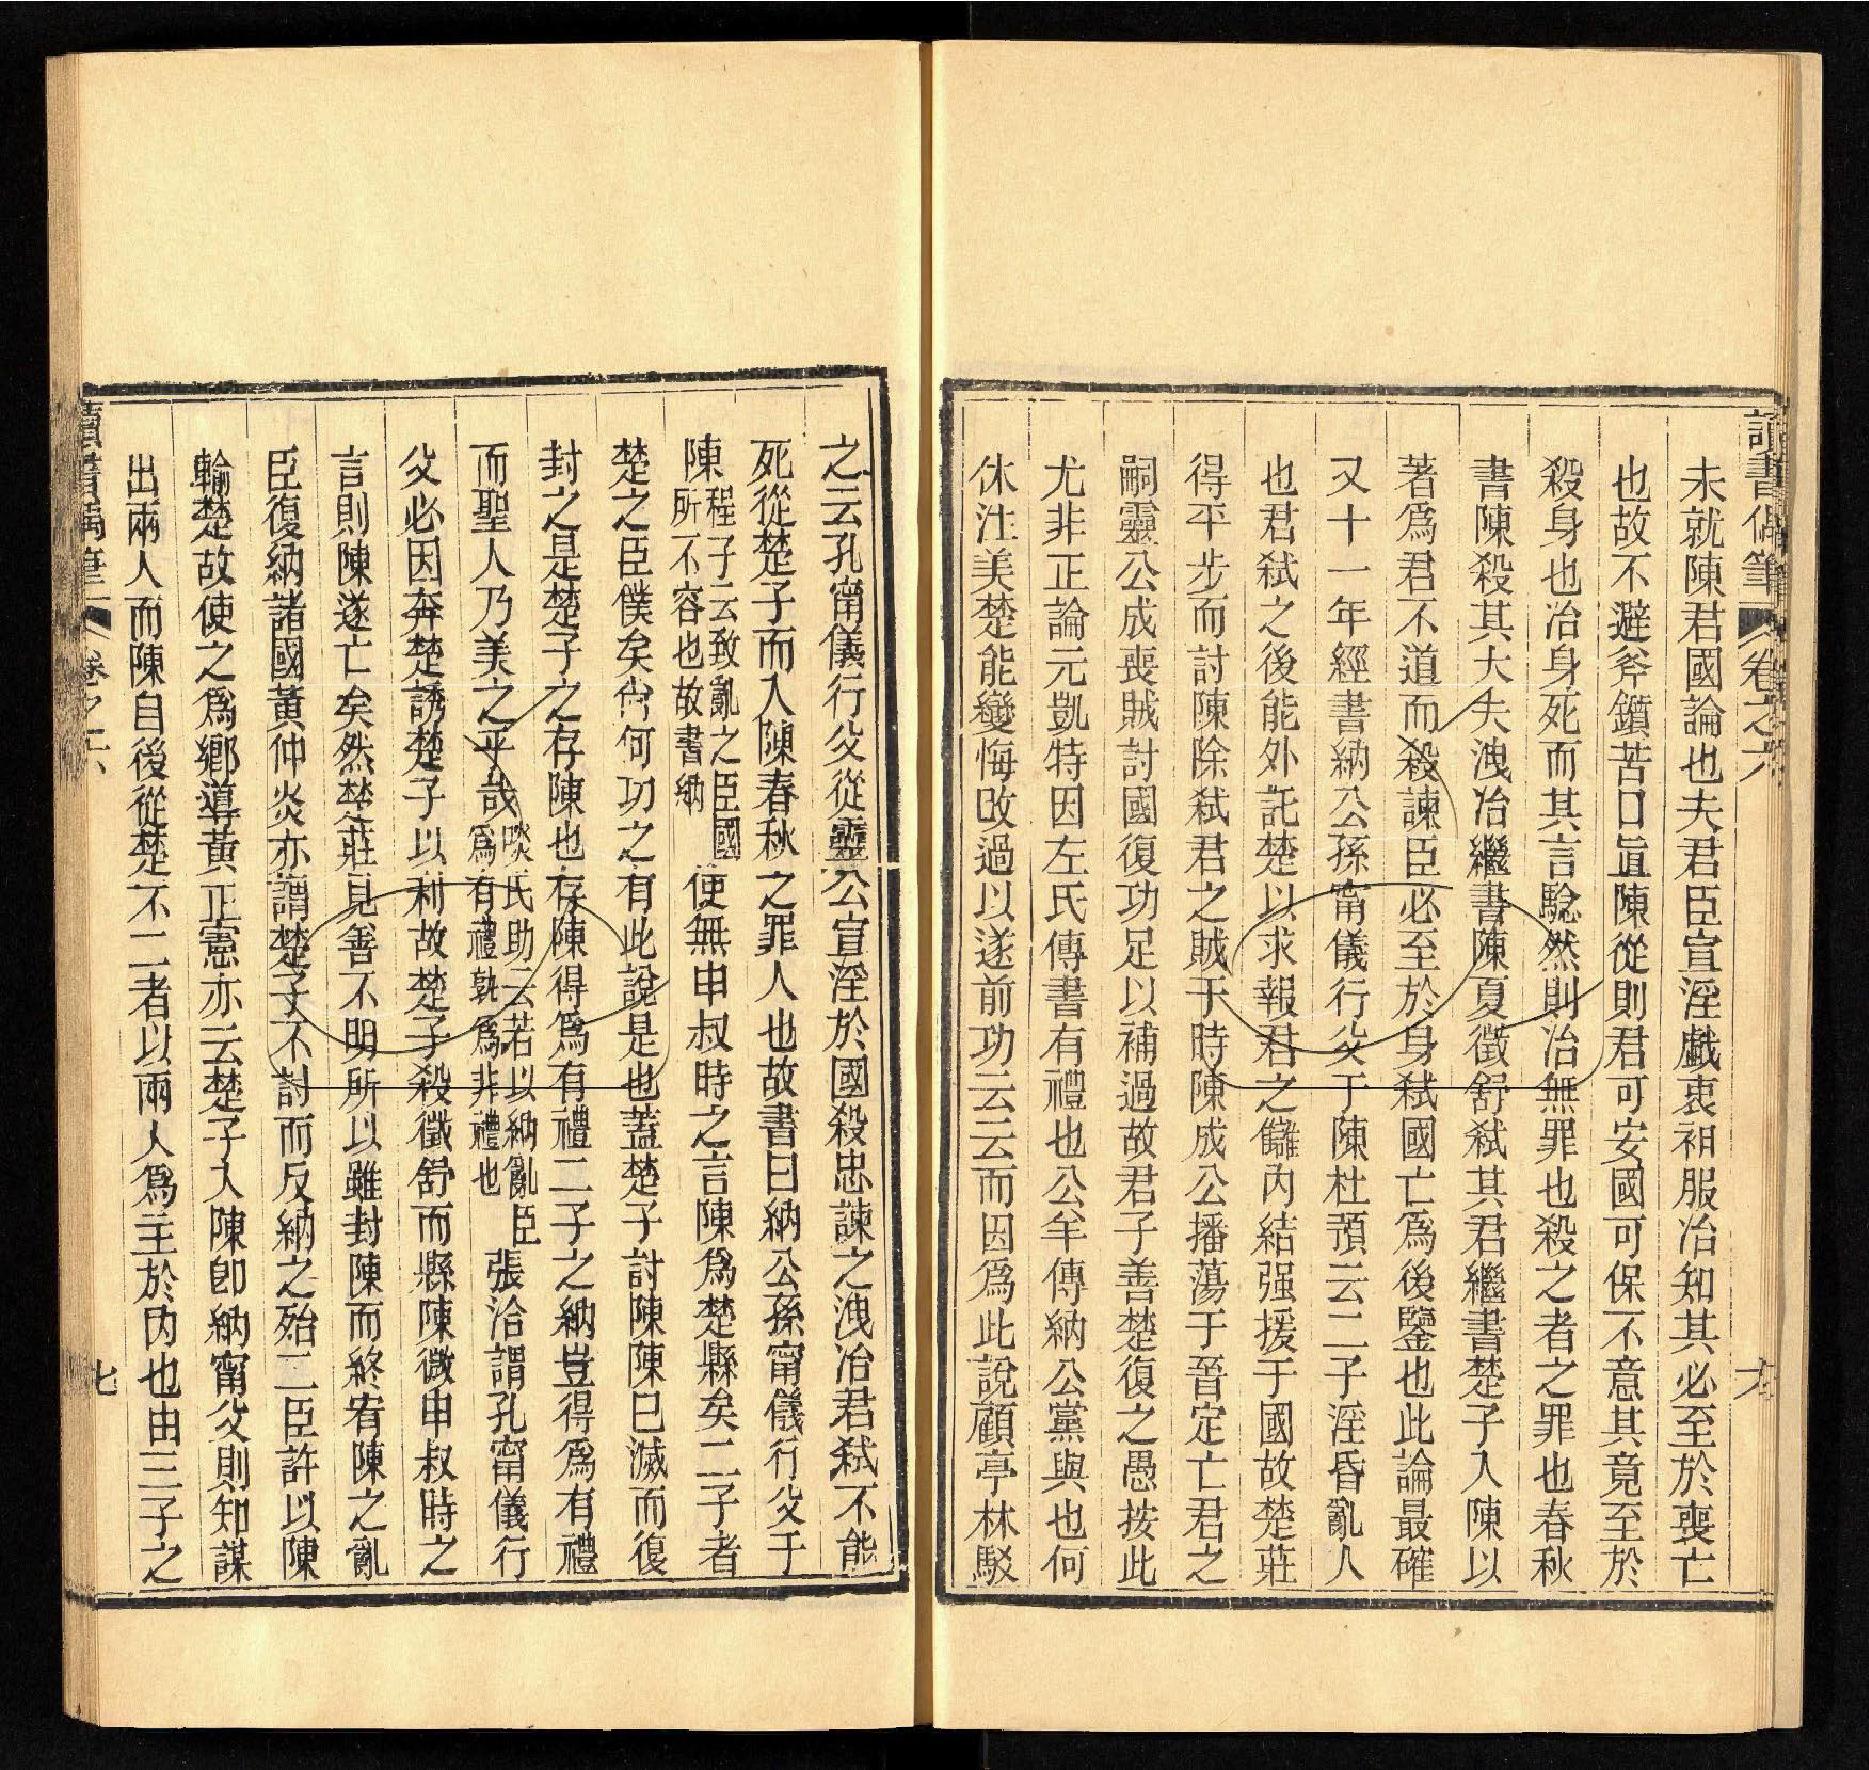 讀書偶筆 卷之六 六
未就陳君國論也夫君臣宣淫戲衷衵服冶知其必至於喪亡
也故不避斧鑕苦口直陳從則君可安國可保不意其竟至於
殺身也冶身死而其言驗然則冶無罪也殺之者之罪也春秋
書陳殺其大夫洩冶繼書陳夏徵舒弒其君繼書楚子入陳以
著爲君不道而殺諫臣必至於身弒國亡爲後鑒也此論最確
又十一年經書納公孫甯儀行父于陳杜預云二子淫昏亂人
也君弒之後能外託楚以求報君之讎內結强援于國故楚莊
得平步而討陳除弒君之賊于時陳成公播蕩于晉定亡君之
嗣靈公成喪賊討國復功足以補過故君子善楚復之愚按此
尤非正論元凱特因左氏傳書有禮也公羊傳納公黨與也何
休注美楚能變悔改過以遂前功云云而因爲此說顧亭林駁
之云孔甯儀行父從靈公宣淫於國殺忠諫之洩冶君弒不能
死從楚子而入陳春秋之罪人也故書曰納公孫甯儀行父于
陳程子云致亂之臣國所不容也故書納使無申叔時之言陳爲楚縣矣二子者
楚之臣僕矣尙何功之有此說是也蓋楚子討陳陳已滅而復
封之是楚子之存陳也存陳得爲有禮二子之納豈得爲有禮
而聖人乃美之乎哉啖氏助云若以納亂臣爲有禮孰爲非禮也張洽謂孔甯儀行
父必因奔楚誘楚子以利故楚子殺徵舒而縣陳微申叔時之
言則陳遂亡矣然楚莊見善不明所以雖封陳而終宥陳之亂
臣復納諸國黃仲炎亦謂楚子不討而反納之殆二臣許以陳
輸楚故使之爲鄉導黃正憲亦云楚子入陳卽納甯父則知謀
出兩人而陳自後從楚不二者以兩人爲主於內也由三子之
讀書偶筆 卷之六 七